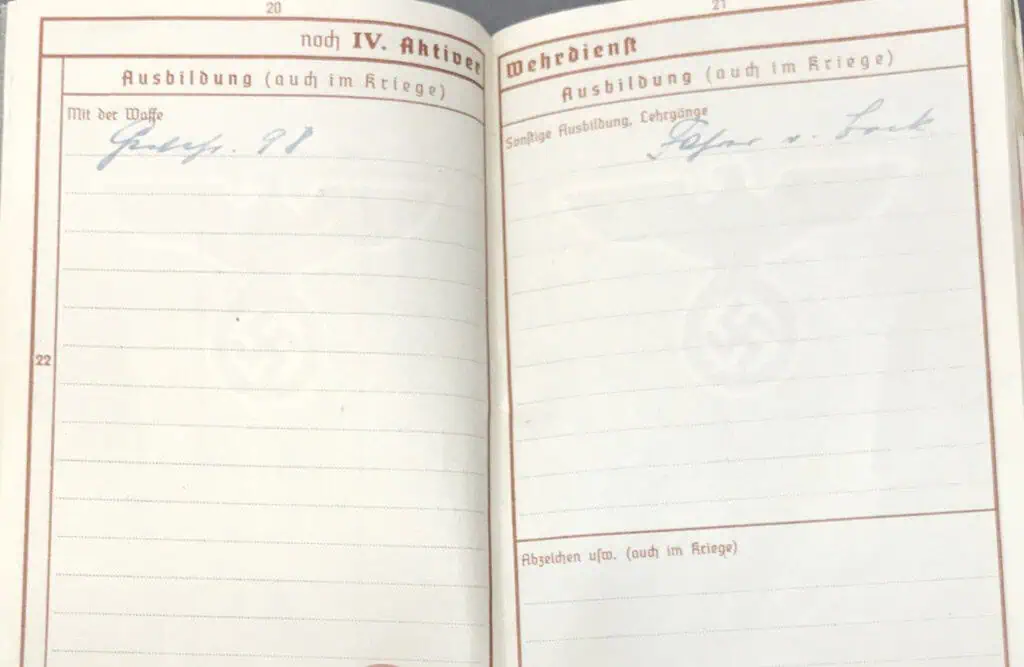 20
noch IV. Aktiver
Ausbildung (auch im Kriege)
Mit der Waffe
98
22
21
Wehrdienst
Ausbildung (auch im Kriege)
Sonstige Ausbildung, Lehrgänge
Fahrer v. Bock
Abzeichen usw. (auch im Kriege)